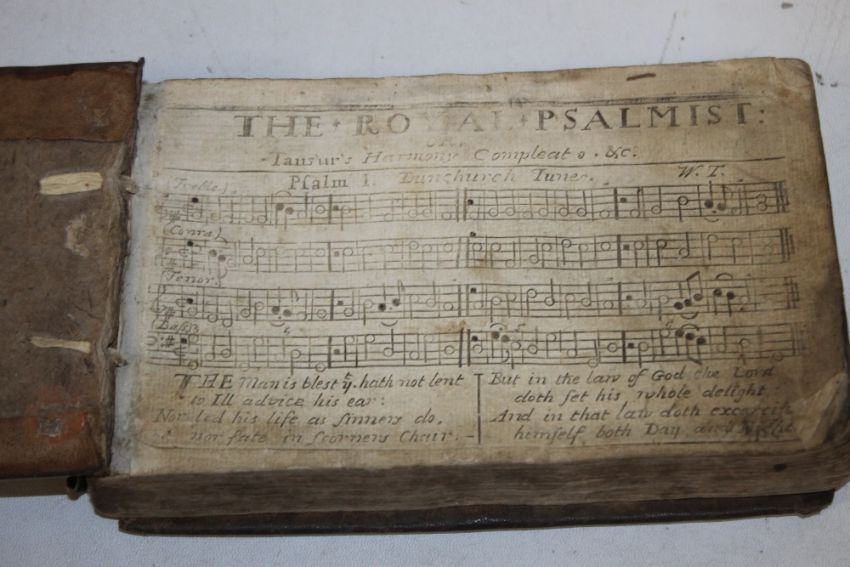 THE ROYAL PSALMIST:
OR,
Tansur's Harmony Compleat. &c.
Psalm I. Dunchurch Tune. W. T.
Treble.
Contra.
Tenor.
Bass.
THE Man is blest yt. hath not lent
to Ill advice his ear:
Nor led his life as sinners do,
nor sate in scorners Chair.
But in the law of God the Lord
doth set his whole delight
And in that law doth excercise
himself both Day and Night.